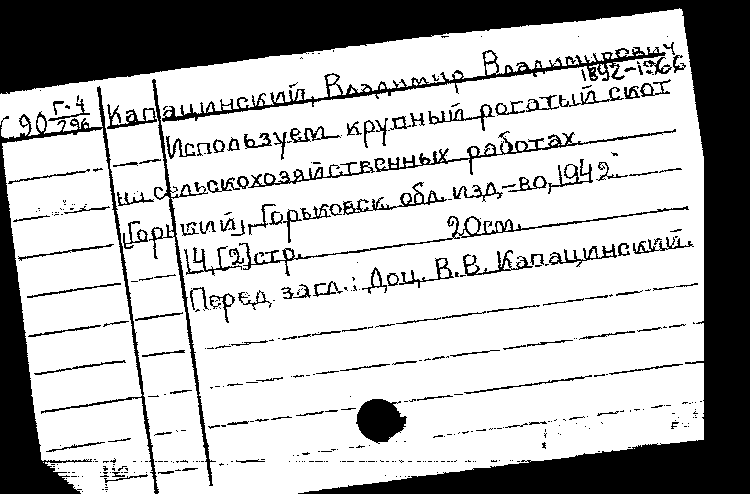 С 90 Г-4/296 Капацинский, Владимир Владимирович
1892-1966
Используем крупный рогатый скот
на сельскохозяйственных работах.
[Горький], Горьковск. обл. изд.-во, 1942.
14,[2]стр. 20см.
Перед загл.: Доц. В.В. Капацинский.